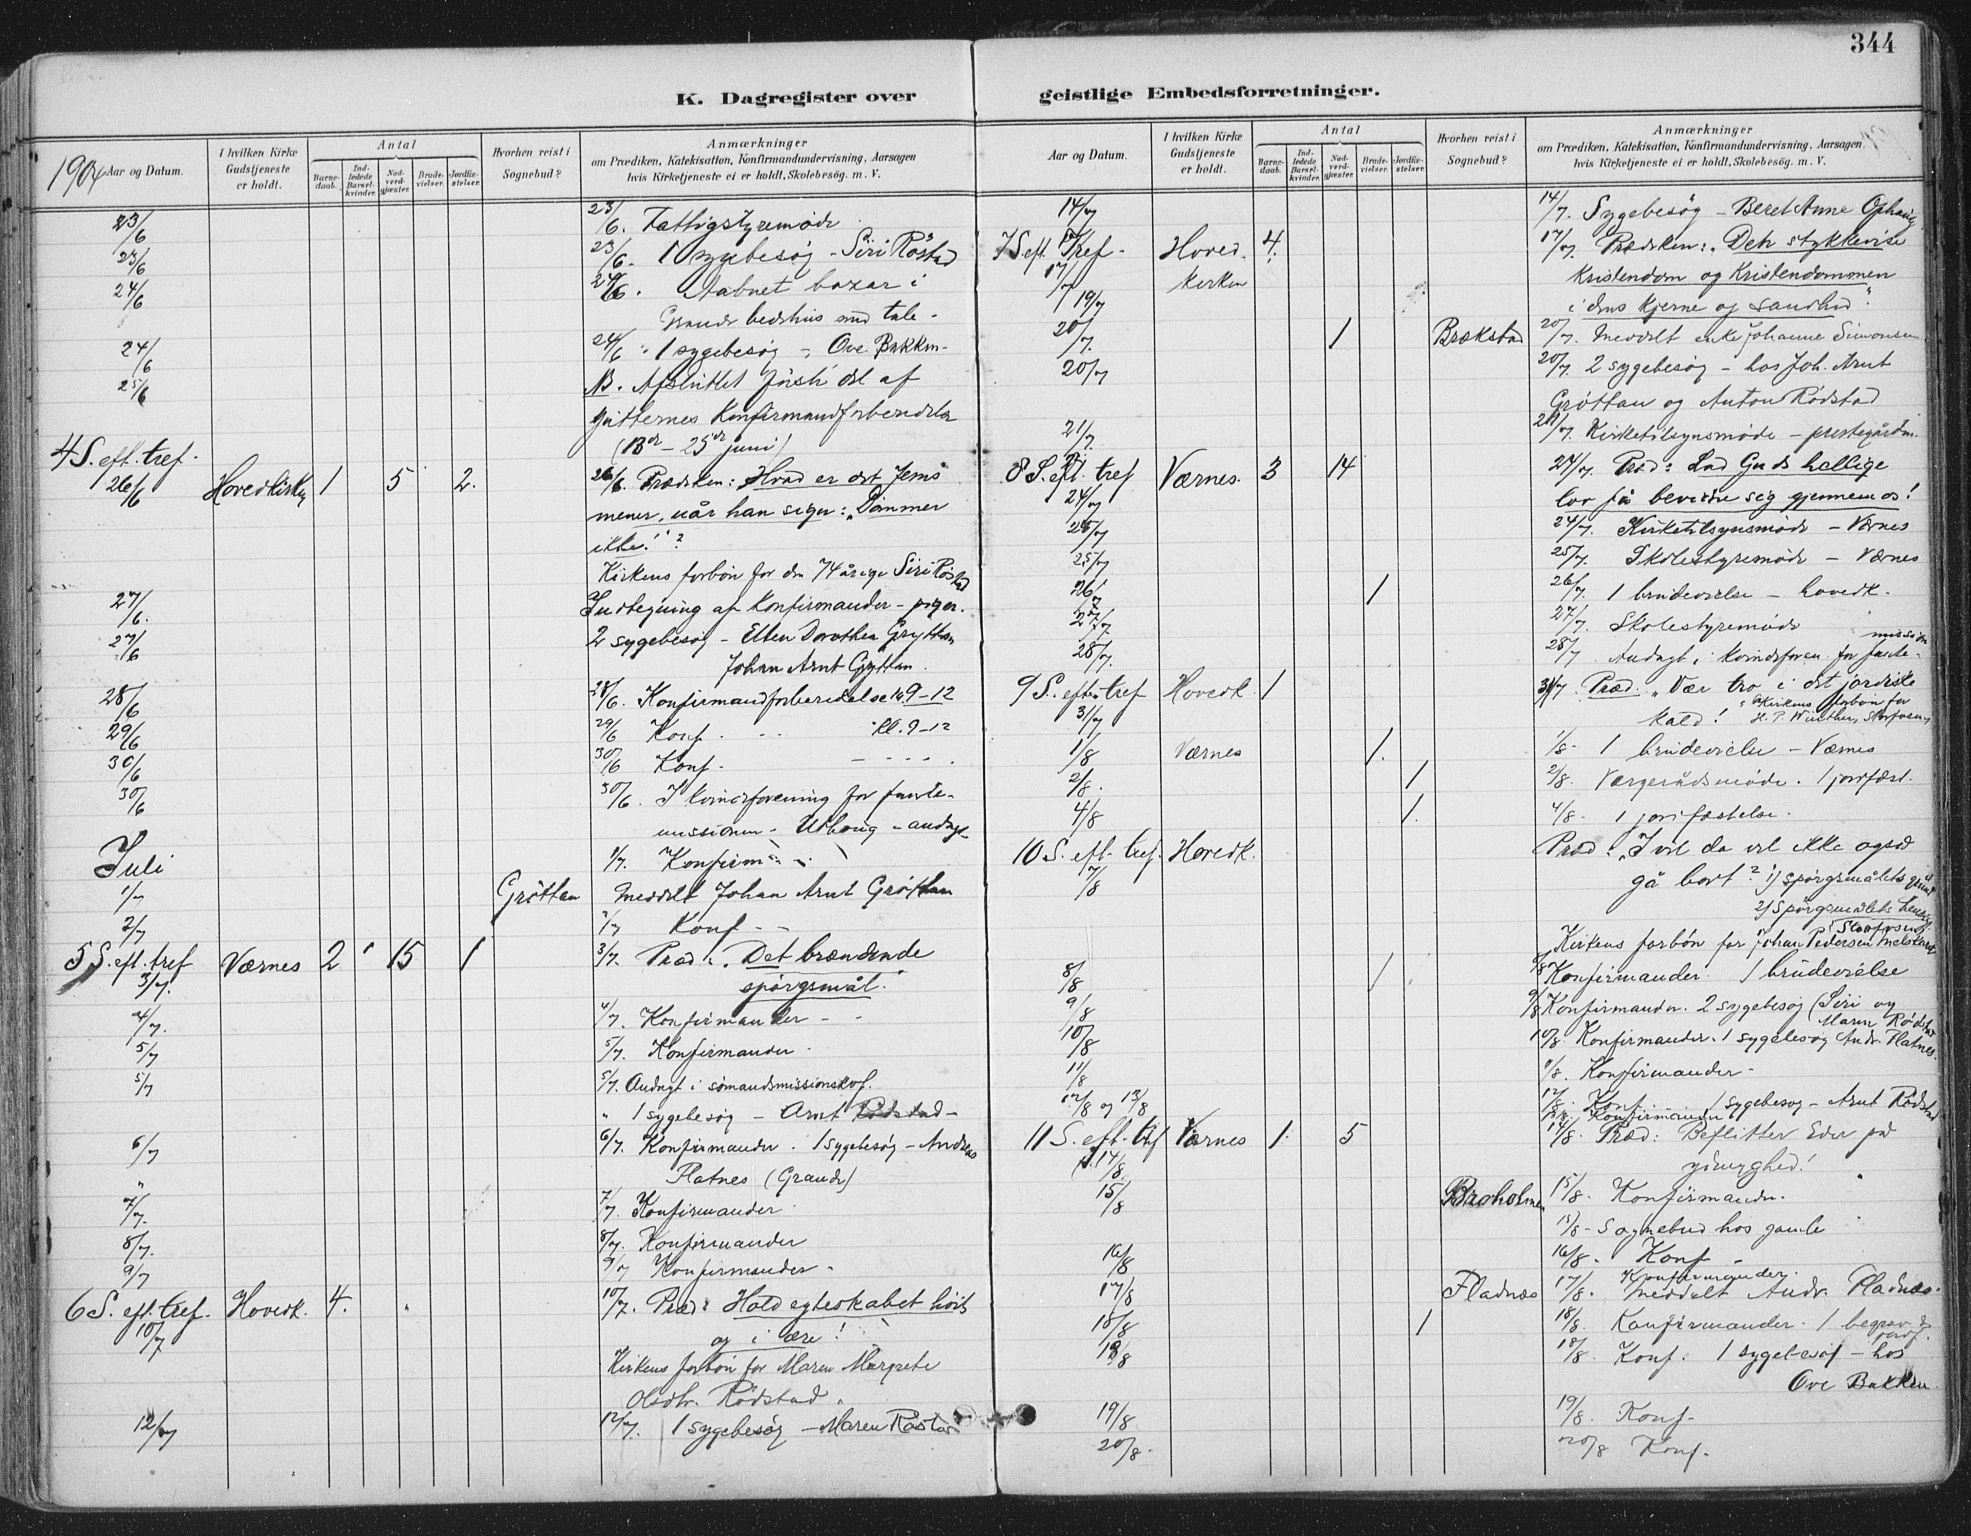 344
K. Dagregister over
geistlige Embedsforretninger.
1904
Aar og Datum.
I hvilken Kirke Gudstjeneste er holdt.
Antal
Barne-daab.
Ind-ledede Barsel-kvinder.
Nad-verd-gjæster.
Brude-vielser.
Jordfæ-stelser.
Hvorhen reist i Sognebud?
Anmærkninger
om Prædiken, Katekisation, Konfirmandundervisning, Aarsagen
hvis Kirketjeneste ei er holdt, Skolebesøg. m. V.
23/6 23/6. Fattigstyremøde
23/6 23/6. 1 sygebesøg - Siri Røstad
24/6 24/6. Aabnet bazar i
Grande bedehus med tale -
24/6 24/6 1 sygebesøg - Ove Bakken -
25/6 NB. Afsluttet første del af
gutternes Konfirmandforberedelse
(13de - 25de juni)
4 S. eft. tref.
26/6 Hovedkirken 1 5 2. 26/6. Prædiken: Hvad er det Jesus
mener, når han siger: "Dømmer
ikke!"?
Kirkens forbøn for den 74 årige Siri Røstad
27/6. Indtegning af Konfirmander - piger.
27/6 2 sygebesøg - Ellen Dorothea Grøttan
Johan Arnt Grøttan.
28/6 28/6. Konfirmandforberedelse kl 9-12
29/6 29/6 Konf. - - kl. 9-12
30/6 30/6 Konf. - - - -
30/6 30/6. I kvindeforening for fante-
missionen - Uthaug - andagt
Juli 1/7. Konfirm - -
1/7 Grøttan Meddelt Johan Arnt Grøttan
2/7 2/7 Konf - -
5 S. eft. tref Værnes 2 1 15 1 3/7. Præd: "Det brændende
3/7. spørgsmål."
4/7. 4/7. Konfirmander - -
5/7 5/7. Konfirmander
5/7 5/7. Andagt i sømandsmissionskvf.
" 1 sygebesøg - Arnt Rødstad -
6/7 6/7. Konfirmander. 1 sygebesøg - Andreas
" Flatnes (Grande)
7/7. 7/7. Konfirmander
8/7. 8/7. Konfirmander
9/7 9/7 Konfirmander -
6 S. eft. tref. Hovedk. 4. 10/7. Præd: Hold egteskabet høit
10/7 og i ære!
Kirkens forbøn for Maren Margrete
Olsdtr. Rødstad.
12/7 12/7. 1 sygebesøg - Maren Røstad
Aar og Datum.
I hvilken Kirke Gudstjeneste er holdt.
Antal
Barne-daab.
Ind-ledede Barsel-kvinder.
Nad-verd-gjæster.
Brude-vielser.
Jordfæ-stelser.
Hvorhen reist i Sognebud?
Anmærkninger
om Prædiken, Katekisation, Konfirmandundervisning, Aarsagen,
hvis Kirketjeneste ei er holdt, Skolebesøg. m. V.
14/7 14/7. Sygebesøg - Beret Anne Ophaug
7 S. eft. tref - Hoved- 4. 17/7. Prædiken: "Den stykkevise
17/7 kirken Kristendom og Kristendommen
19/7 i dens kjerne og sandhed."
20/7. 1 Brækstad 20/7. Meddelt enke Johanne Simonsen
20/7 20/7 2 sygebesøg - hos Joh. Arnt
Grøttan og Anton Rødstad
21/7 21/7. Kirketilsynsmøde - prestegården.
8 S. eft. tref Værnes. 3 14 24/7. Præd: Lad Guds hellige
24/7 lov få bevidne sig gjennem os!
24/7 24/7. Kirketilsynsmøde - Værnes
25/7 25/7. Skolestyremøde - Værnes
26/7 1 26/7. 1 brudevielse - hovedk.
27/7 27/7. Skolestyremøde
28/7. 28/7 Andagt i kvindeforen. for fante-
mission
9 S. eft. tref Hovedk. 1 31/7. Præd. "Vær tro i det jordiske
31/7 kald! Kirkens forbøn for
H. P. Winther, Storfosen
1/8 Værnes 1. 1/8- 1 brudevielse - Værnes
2/8. 1 2/8. Værgerådsmøde. 1 jordfæst.
4/8 1. 4/8- 1 jordfæstelse.
10 S. eft. tref. Hovedk. Præd: "I vil da vel ikke også
7/8 gå bort? 1) Spørgsmålets grund
2) Spørgsmålets
Storfosen
Kirkens forbøn for Johan Pedersen
8/8 1 8/8 Konfirmander. 1 brudevielse
9/8 9/8 Konfirmander. 2 sygebesøg (Siri og
Maren Rødstad
10/8 10/8. Konfirmander. 1 sygebesøg Andr. Flatnes.
11/8 11/8. Konfirmander -
12/8 og 13/8 12/8. Konf. 1 sygebesøg - Arnt Rødstad
13/8. Konfirmander
11 S. eft. tref Værnes 1. 5 14/8. Præd: Beflitter Eder på
14/8. ydmyghed!
15/8 Broholmen 15/8. Konfirmander.
15/8- Sognebud hos gamle
16/8 16/8. Konf -
Konfirmander.
17/8 Fladnæs 17/8. Meddelt Andr. Fladnæs.
18/8 1 18/8. Konfirmander. 1 begrav. &
jordf.
18/8 18/8. Konf. 1 sygebesøg - hos
Ove Bakken.
19/8 19/8. Konf.
20/8. 20/8 Konf.